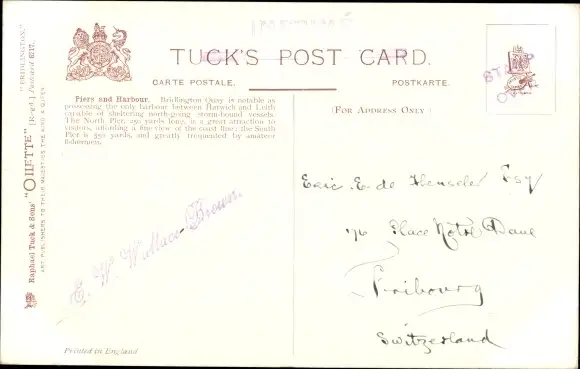 TUCK'S POST CARD.
CARTE POSTALE.
POSTKARTE.
Piers and Harbour. Bridlington Quay is notable as
possessing the only harbour between Harwich and Leith
capable of sheltering north-going storm-bound vessels.
The North Pier, 250 yards long, is a great attraction to
visitors, affording a fine view of the coast line; the South
Pier is 550 yards, and greatly frequented by amateur
fishermen.
(FOR ADDRESS ONLY)
STAMP
Raphael Tuck & Sons' "OILETTE" [Regd.] Postcard 6217.
"BRIDLINGTON."
ART PUBLISHERS TO THEIR MAJESTIES THE KING & QUEEN
E. W. Wallace Brown.
Eric E. de Esqy
Place Notre Dame
Fribourg
Switzerland
Printed in England